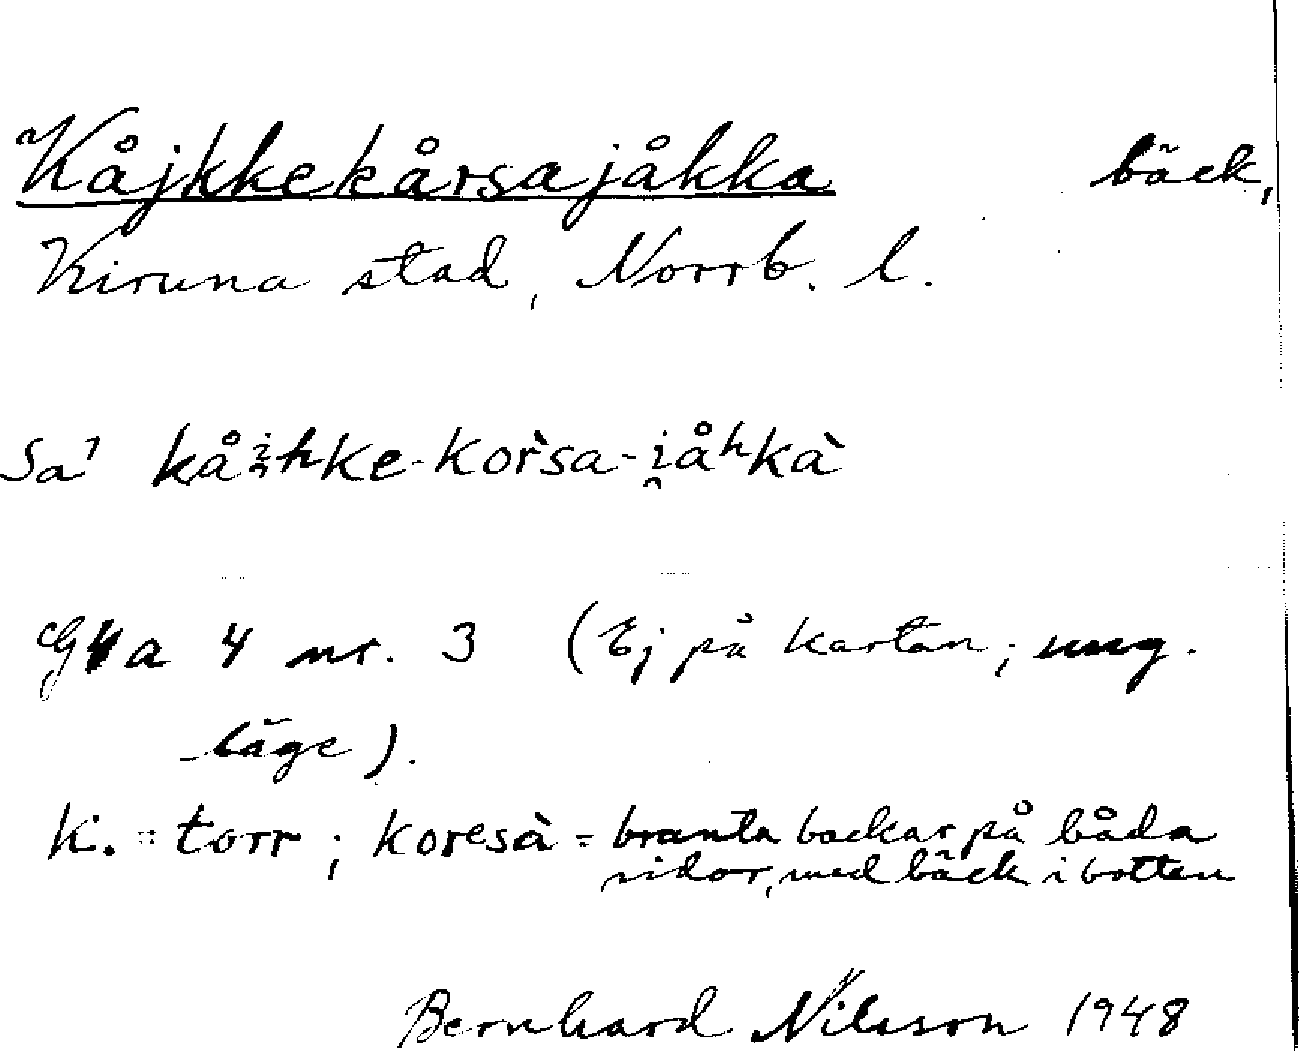 Kåjkkekårsajåkka bäck,
Kiruna stad, Norrb. l.
Sa' kåi̯hke-korsa-i̯åhkà
G4a 4 nr. 3 (Ej på kartan; ung.
läge).
K. = torr; koresà = branta backar på båda
sidor, med bäck i botten
Bernhard Nilsson 1948